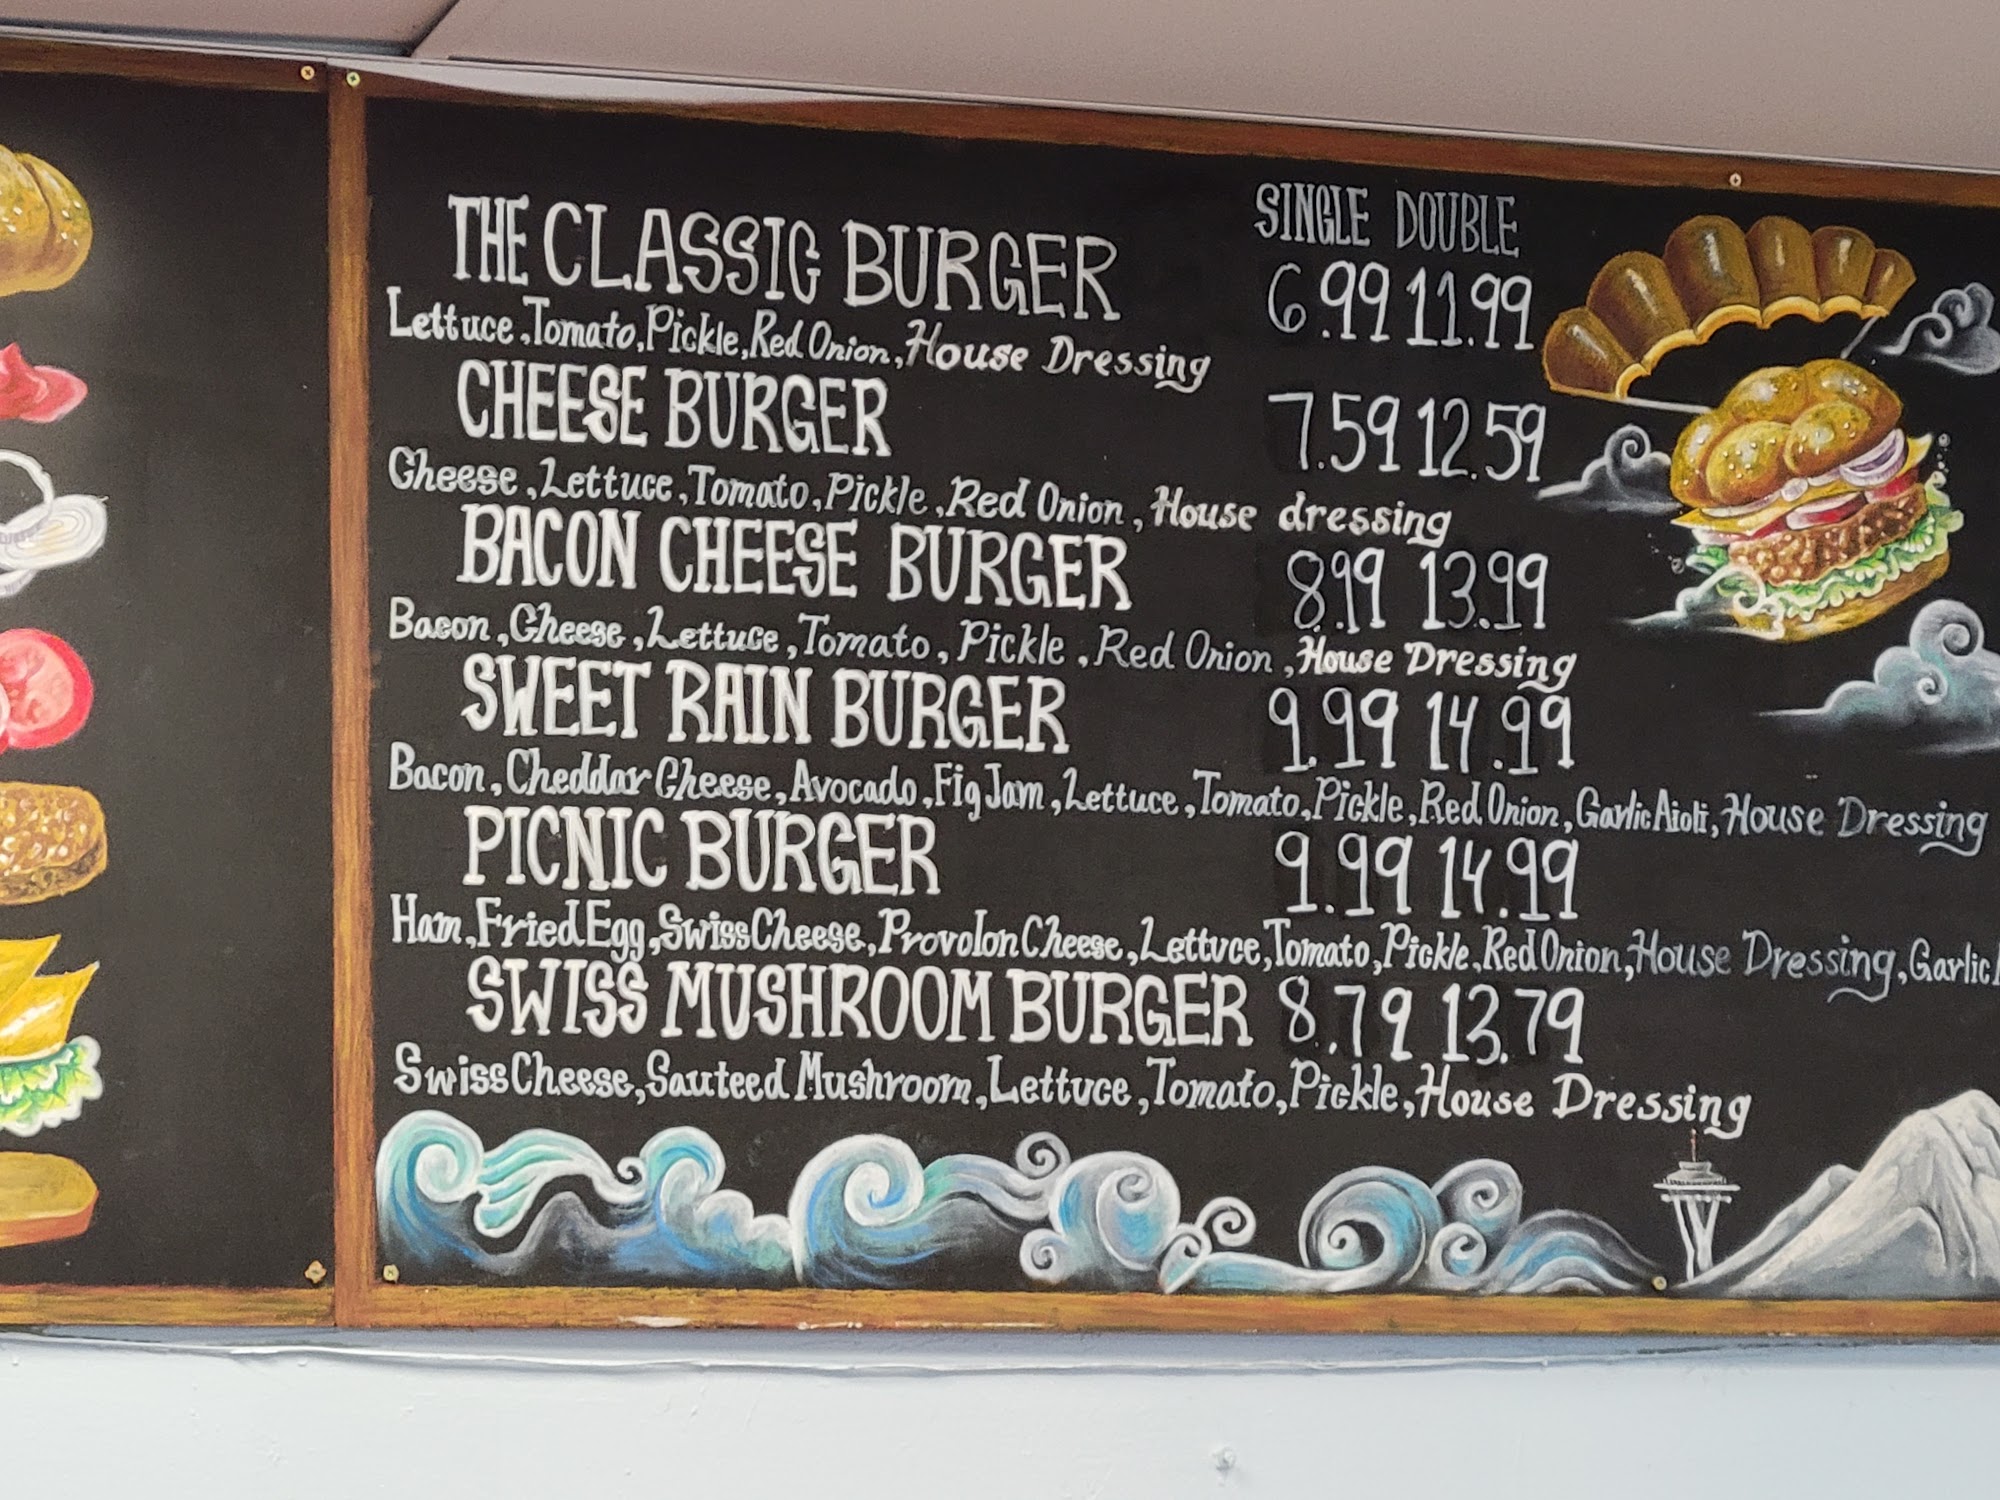 SINGLE DOUBLE
THE CLASSIC BURGER 6.99 11.99
Lettuce, Tomato, Pickle, Red Onion, House Dressing
CHEESE BURGER 7.59 12.59
Cheese, Lettuce, Tomato, Pickle, Red Onion, House dressing
BACON CHEESE BURGER 8.99 13.99
Bacon, Cheese, Lettuce, Tomato, Pickle, Red Onion, House Dressing
SWEET RAIN BURGER 9.99 14.99
Bacon, Cheddar Cheese, Avocado, Fig Jam, Lettuce, Tomato, Pickle, Red Onion, Garlic Aioli, House Dressing
PICNIC BURGER 9.99 14.99
Ham, Fried Egg, Swiss Cheese, Provolon Cheese, Lettuce, Tomato, Pickle, Red Onion, House Dressing, Garlic
SWISS MUSHROOM BURGER 8.79 13.79
Swiss Cheese, Sauteed Mushroom, Lettuce, Tomato, Pickle, House Dressing